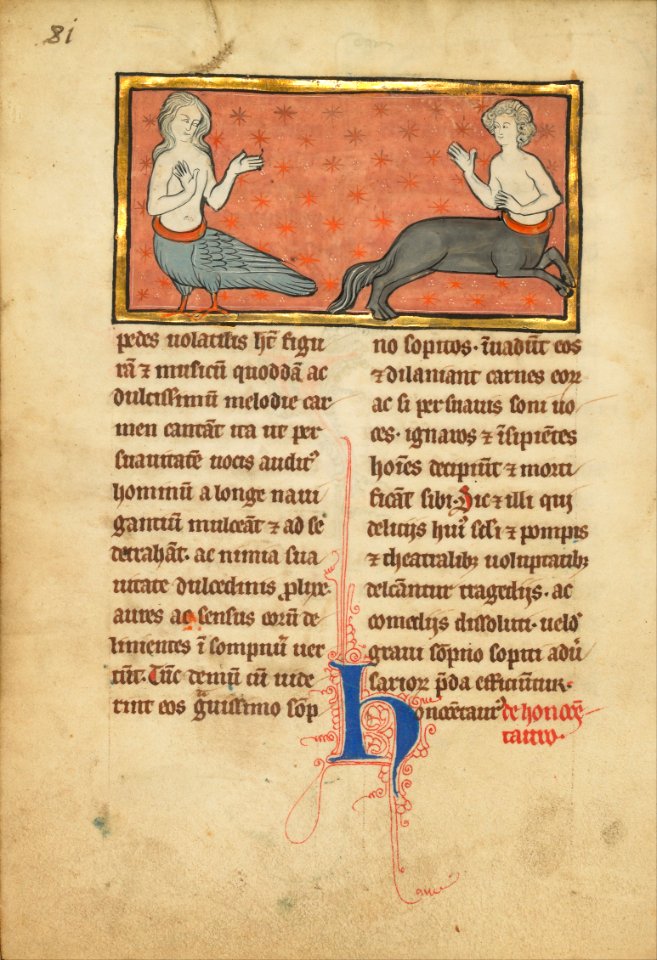 81
pedes uolatilis hn̄t figu
rā ⁊ musicū quoddā ac
dulcissimū melodie car
men cantāt ita ut per
suauitatē uocis audit᷒
hominū a longe naui
gantiū mulceāt ⁊ ad se
detrahāt. ac nimia sua
uitate dulcedinis plix̄
aures ac sensus eorū de
linientes ī sompnū uer
tūt. Tūc demū cū uide
rint eos gͣuissimo sōp
no sopitos. īuadūt eos
⁊ dilaniant carnes eoꝝ
ac si persuauis soni uo
ces. ignaros ⁊ īsipiētes
hoīes decipiūt ⁊ morti
ficāt sibi. Sic ⁊ illi qui
delicijs hui᷒ scl̄i ⁊ pompis
⁊ theatralibꝫ uoluptatibꝫ
delcāntur tragedijs. ac
comedijs dissoluti. uelᷓ
graui sōpno sopiti aduͥ
sarioꝝ p̄da efficiuntur.
honocētaur᷒ de honocē
tauro.